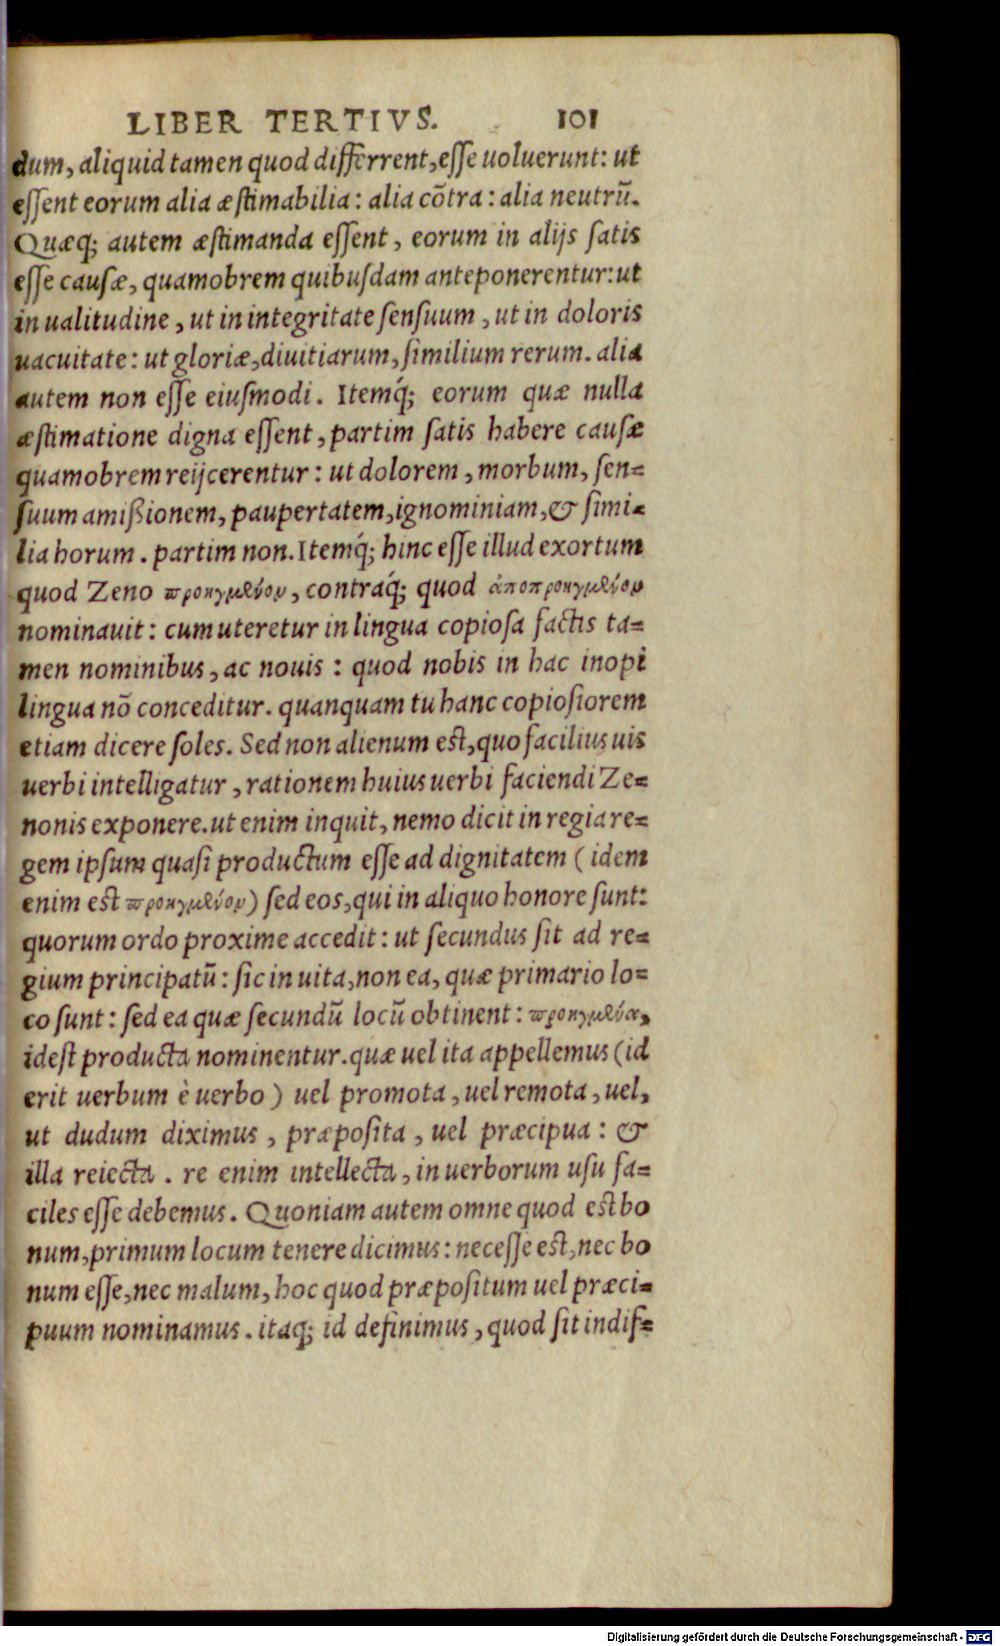 LIBER TERTIVS. 101
dum, aliquid tamen quod differrent, eſſe uoluerunt: ut
eſſent eorum alia æſtimabilia: alia cõtra: alia neutrũ.
Quæq; autem æſtimanda eſſent, eorum in alijs ſatis
eſſe cauſæ, quamobrem quibuſdam anteponerentur: ut
in ualitudine, ut in integritate ſenſuum, ut in doloris
uacuitate: ut gloriæ, diuitiarum, ſimilium rerum. alia
autem non eſſe eiuſmodi. Itemq́; eorum quæ nulla
æſtimatione digna eſſent, partim ſatis habere cauſæ
quamobrem reijcerentur: ut dolorem, morbum, ſen=
ſuum amißionem, paupertatem, ignominiam, & ſimi=
lia horum. partim non. Itemq́; hinc eſſe illud exortum
quod Zeno προηγμένον, contraq́; quod ἀποπροηγμένον
nominauit: cum uteretur in lingua copioſa factis ta=
men nominibus, ac nouis: quod nobis in hac inopi
lingua nõ conceditur. quanquam tu hanc copioſiorem
etiam dicere ſoles. Sed non alienum eſt, quo facilius uis
uerbi intelligatur, rationem huius uerbi faciendi Ze=
nonis exponere. ut enim inquit, nemo dicit in regia re=
gem ipſum quaſi productum eſſe ad dignitatem (idem
enim est προηγμένον) ſed eos, qui in aliquo honore ſunt:
quorum ordo proxime accedit: ut ſecundus ſit ad re=
gium principatũ: ſic in uita, non ea, quæ primario lo=
co ſunt: ſed ea quæ ſecundũ locũ obtinent: προηγμένα,
ideſt producta nominentur. quæ uel ita appellemus (id
erit uerbum è uerbo) uel promota, uel remota, uel,
ut dudum diximus, præpoſita, uel præcipua: &
illa reiecta. re enim intellecta, in uerborum uſu fa=
ciles eſſe debemus. Quoniam autem omne quod eſt bo
num, primum locum tenere dicimus: neceſſe eſt, nec bo
num eſſe, nec malum, hoc quod præpoſitum uel præci=
puum nominamus. itaq; id definimus, quod ſit indif=
Digitalisierung gefördert durch die Deutsche Forschungsgemeinschaft - DFG